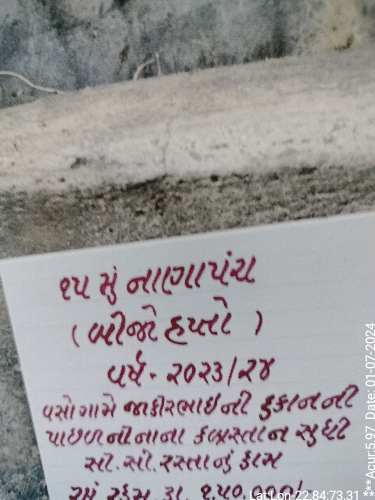 ૧૫ મું નાણાપંચ
( બીજો હપ્તો )
વર્ષ - ૨૦૨૩/૨૪
વસો ગામે જાકીરભાઇની દુકાનની
પાછળનો નાના કબ્રસ્તાન સુધી
સી. સી. રસ્તાનું કામ
રકમ રૂા. ૧,૫૦,૦૦૦/
Lat Lon 22.84:73.31
***Acur:5.97 Date: 01-07-2024